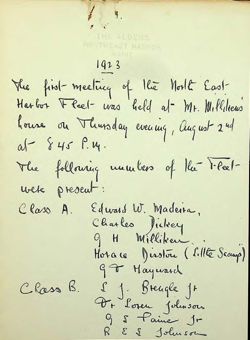 THE ALDERS
NORTHEAST HARBOR
MAINE
1923
The first meeting of the North East
Harbor Fleet was held at Mr. Milliken's
house on Thursday evening, August 2nd
at 8 45 P.M.
The following members of the Fleet
were present:
Class A. Edward W. Madeira,
Charles Dickey
G H Milliken
Horace Disston (Little Scamp)
G T Hayward
Class B. L. J. Brengle Jr
Dr Loren Johnson
G S Paine Jr
R E S Johnson